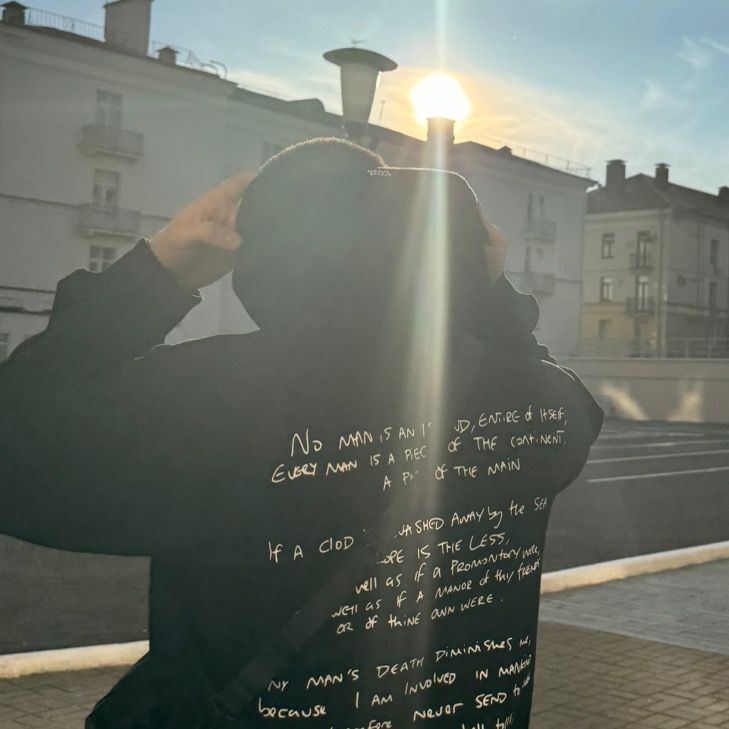 2023
No MAN iS AN D, ENTiRE of ITSElF,
EVERY MAN iS A PiEC OF THE CONTiNENT,
A OF THE MAIN
If A ClOD ASHED AWAY by the SEA
OPE IS THE LESS,
well as if A PROMONTORy were,
WEll as if A MANOR of thy FRiEND
OR of thiNE OWN WERE.
NY MAN'S DEATH DiMiNiSHES ME,
because I AM INVOlVED IN MANKIN
NEVER SEND to